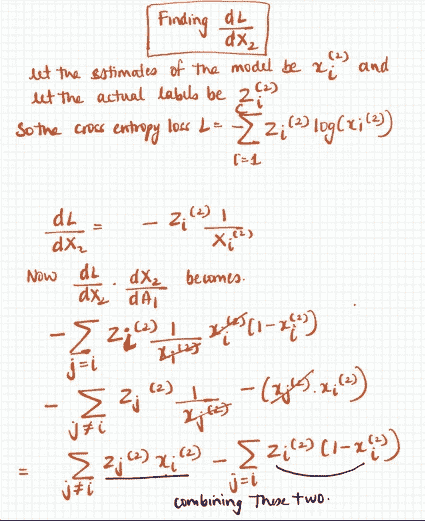 Finding dL/dX₂
let the estimates of the model be xᵢ⁽²⁾ and
let the actual labels be Zᵢ⁽²⁾
So the cross entropy loss L = -∑_{i=1}^{C} Zᵢ⁽²⁾ log(xᵢ⁽²⁾)
dL/dX₂ = - Zᵢ⁽²⁾ 1/Xᵢ⁽²⁾
Now dL/dX₂ · dX₂/dA₁ becomes.
- ∑_{j=i} Zᵢ⁽²⁾ 1/xᵢ⁽²⁾ xᵢ⁽²⁾ (1-xᵢ⁽²⁾)
- ∑_{j≠i} Zⱼ⁽²⁾ 1/xⱼ⁽²⁾ -(xⱼ⁽²⁾ · xᵢ⁽²⁾)
= ∑_{j≠i} Zⱼ⁽²⁾ xᵢ⁽²⁾ - ∑_{j=i} Zᵢ⁽²⁾ (1-xᵢ⁽²⁾)
combining these two.